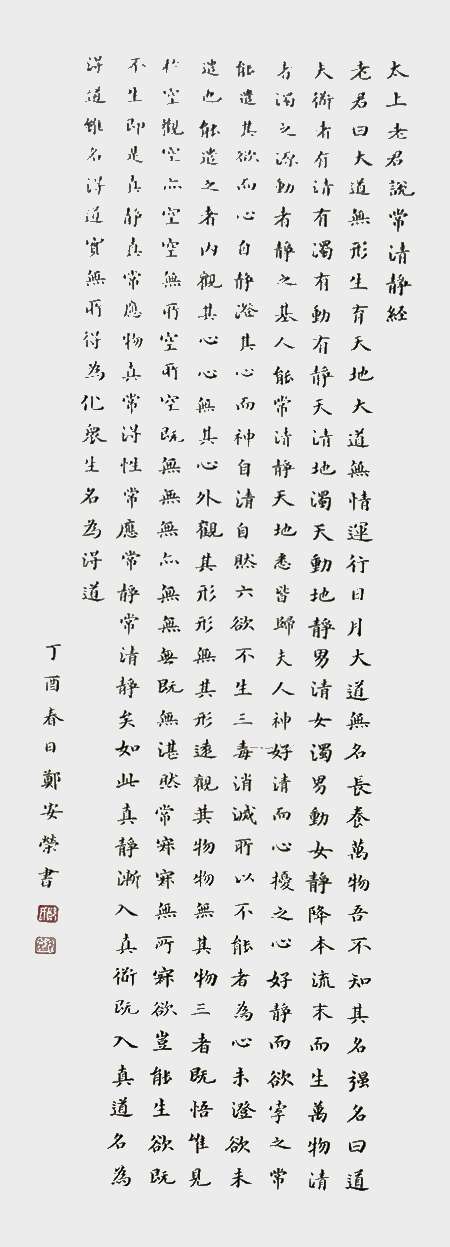 太上老君說常清靜経
老君曰大道無形生育天地大道無情運行日月大道無名長養萬物吾不知其名强名曰道
夫衜者有清有濁有動有靜天清地濁天動地靜男清女濁男動女靜降本流末而生萬物清
者濁之源動者靜之基人能常清靜天地悉皆歸夫人神好清而心擾之心好靜而欲牽之常
能遣其欲而心自靜澄其心而神自清自然六欲不生三毒消滅所以不能者為心未澄欲未
遣也能遣之者內觀其心心無其心外觀其形形無其形遠觀其物物無其物三者既悟惟見
於空觀空亦空空無所空所空既無無無亦無無無既無湛然常寂寂無所寂欲豈能生欲既
不生即是真靜真常應物真常得性常應常靜常清靜矣如此真靜漸入真衜既入真道名為
得道雖名得道實無所得為化眾生名為得道
丁酉春日鄭安榮書